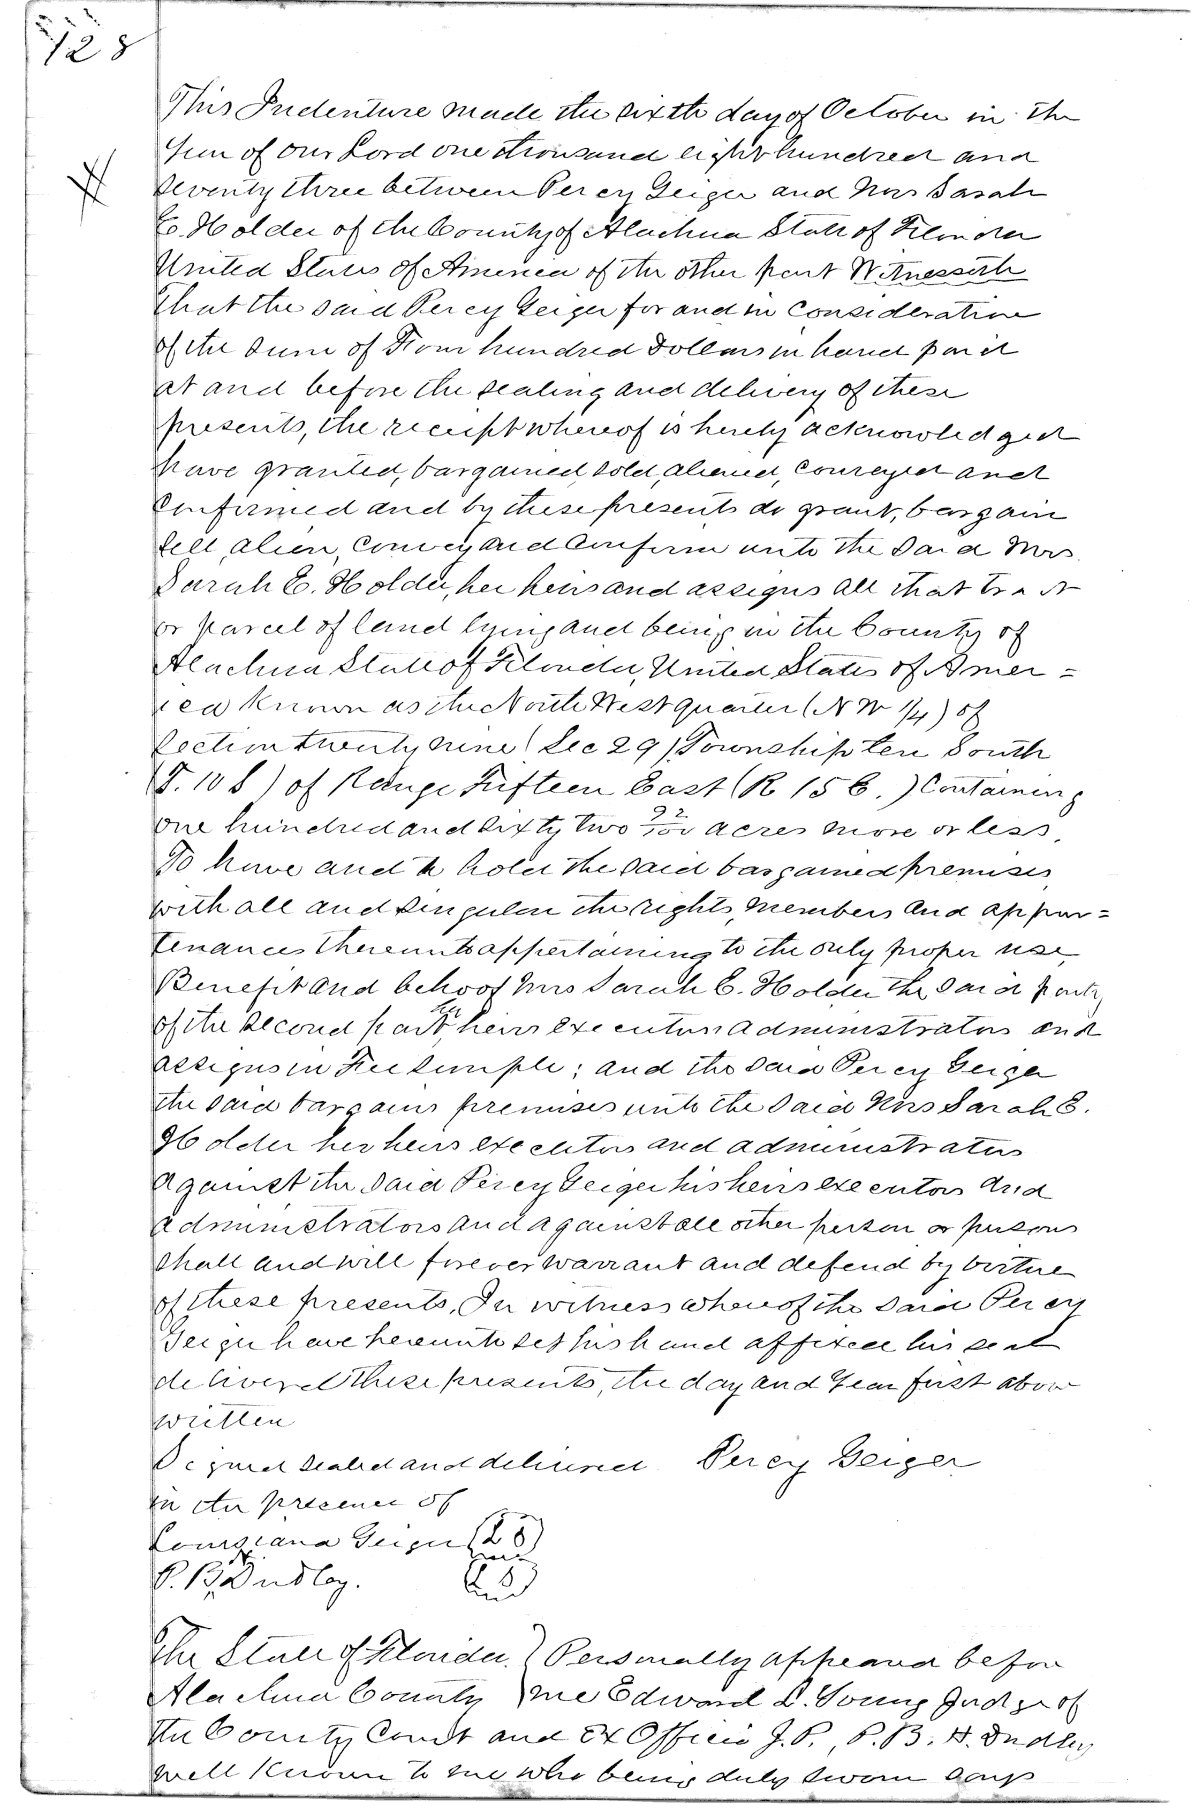 128
This Indenture made the sixth day of October in the
Year of our Lord one thousand eight hundred and
seventy three between Percy Geiger and Mrs Sarah
E. Holder of the County of Alachua State of Florida
United States of America of the other part Witnesseth
That the said Percy Geiger for and in consideration
of the sum of Four hundred Dollars in hand paid
at and before the sealing and delivery of these
presents, the receipt whereof is hereby acknowledged
have granted, bargained, sold, aliened, conveyed and
Confirmed and by these presents do grant, bargain
sell, alien, convey and Confirm unto the said Mrs.
Sarah E. Holder, her heirs and assigns all that tract
or parcel of land lying and being in the County of
Alachua State of Florida, United States of Amer=
ica known as the North West quarter (N W 1/4) of
Section twenty nine (Sec 29) Township ten South
(T. 10 S) of Range Fifteen East (R 15 E.) Containing
one hundred and sixty two 92/100 acres more or less.
To have and to hold the said bargained premises,
with all and singular the rights, members and appur=
tenances thereunto appertaining to the only proper use,
Benefit and behoof Mrs Sarah E. Holder the said party
of the second part, her heirs executors administrators and
assigns in Fee Simple; and the said Percy Geiger
the said bargains premises unto the said Mrs Sarah E.
Holder her heirs executors and administrators
against the said Percy Geiger his heirs executors and
administrators and against all other person or persons
shall and will forever warrant and defend by virtue
of these presents. In witness whereof the said Percy
Geiger have hereunto set his hand affixed his seal
delivered these presents, the day and Year first above
written
Signed sealed and delivered Percy Geiger
in the presence of
Louisiana Geiger (L S)
P. B. H. Dudley. (L S)
The State of Florida } Personally appeared before
Alachua County } me Edward L. Young Judge of
the County Court and Ex Officio J. P., P. B. H. Dudley
well known to me who being duly sworn says